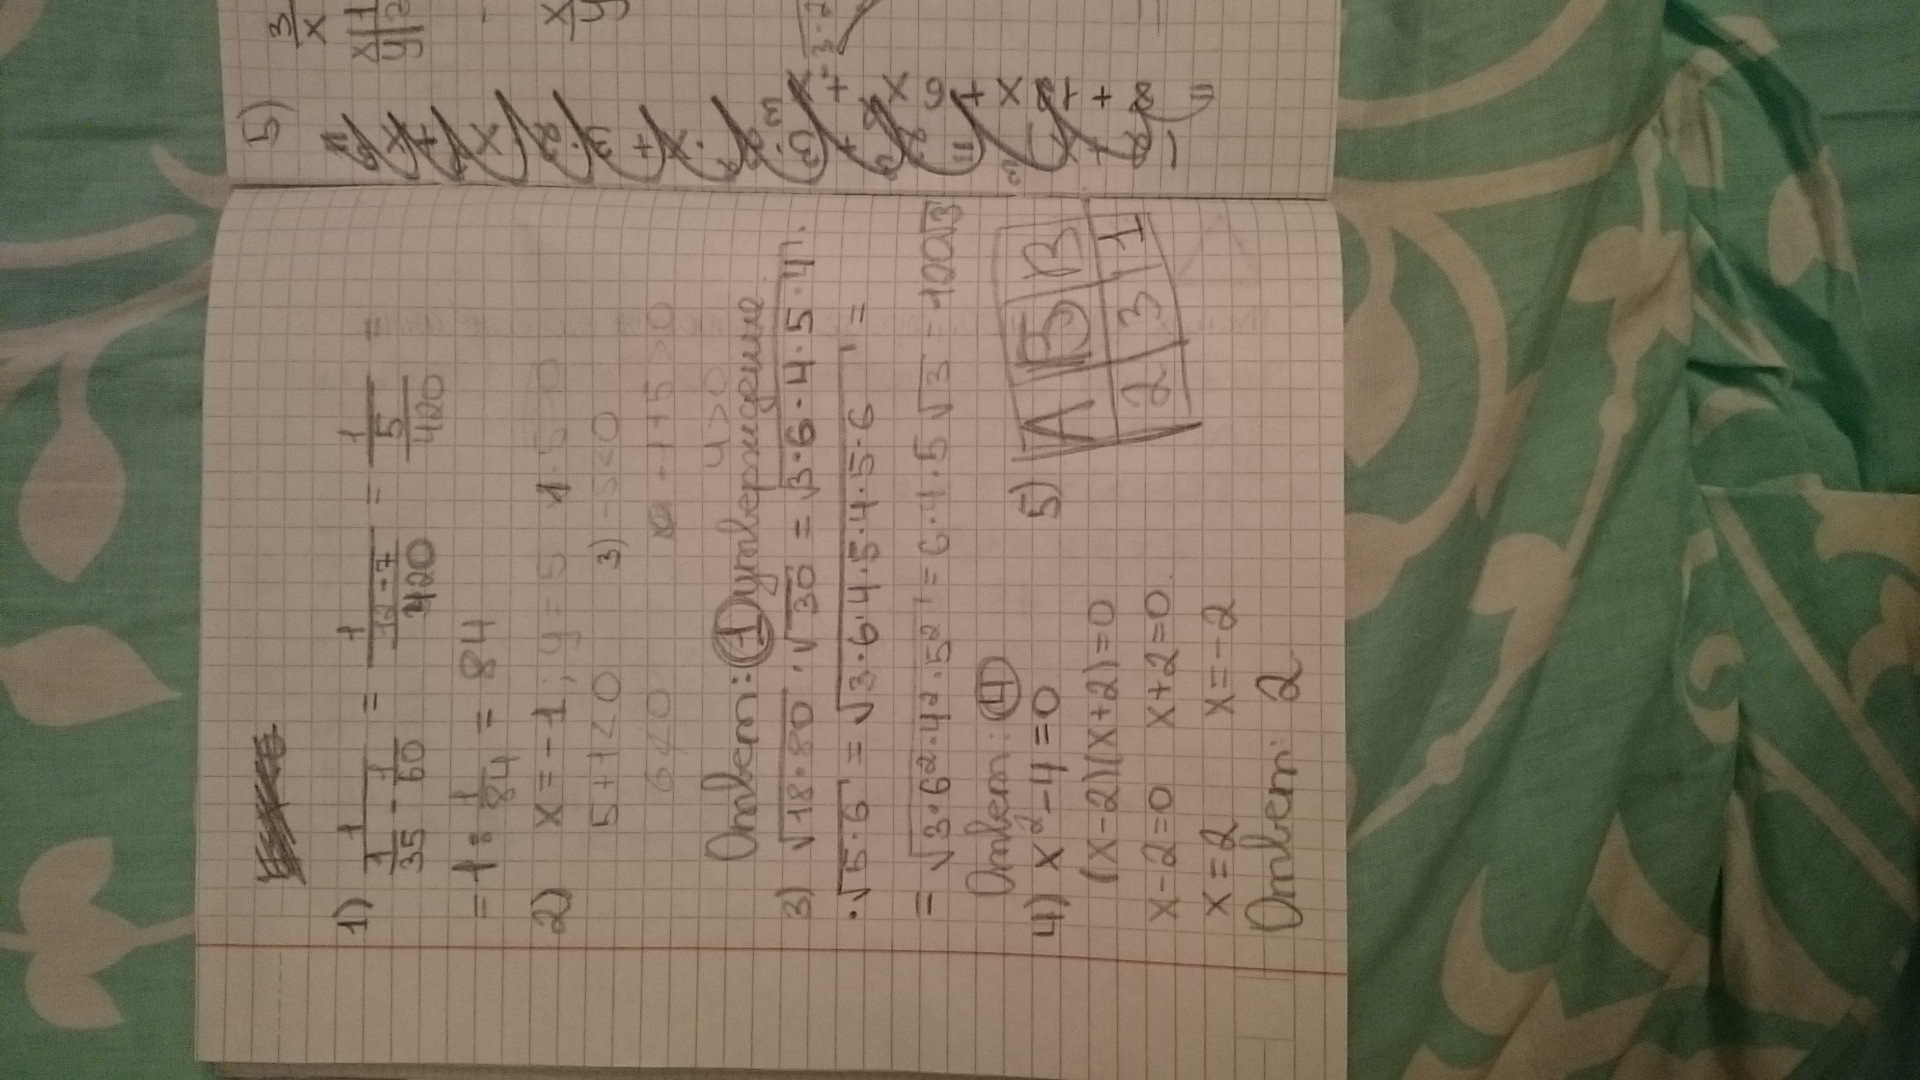 1) 1/(1/35 - 1/60) = 1/((12-7)/420) = 1/(5/420) =
= 1 : 1/84 = 84
2) x = -1; y = 5
5+1<0 3) -5<0
6<0 -1+5>0
4>0
Ответ: 1 утверждение
3) √18·80 · √30 = √3·6·4·5·4·
·√5·6 = √3·6·4·5·4·5·6 =
= √3·6²·4²·5² = 6·4·5√3 = 100√3
Ответ: 4
4) x²-4=0
(x-2)(x+2)=0
x-2=0 x+2=0
x=2 x=-2
Ответ: 2
5) А Б В
2 3 1
3/x
x 1
y 2
5)
= 8 + 12x + 6x + x³